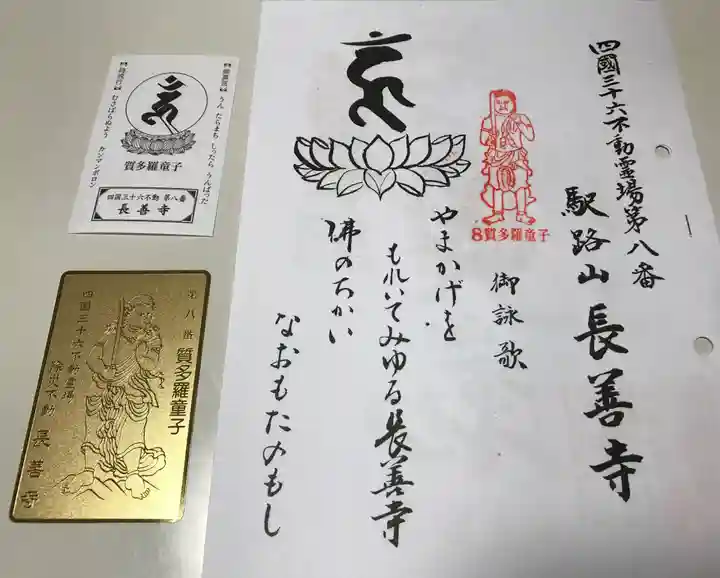 四國三十六不動霊場第八番
馭路山 長善寺
8質多羅童子
御詠歌
やまかげを
もれいてみゆる長善寺
佛のちかい
なおもたのもし
うん たらまち しったら うんぱった
むさぼらぬよう カンマンボロン
質多羅童子
四国三十六不動 第八番
長善寺
第八番 質多羅童子
四国三十六不動霊場
除災不動 長善寺